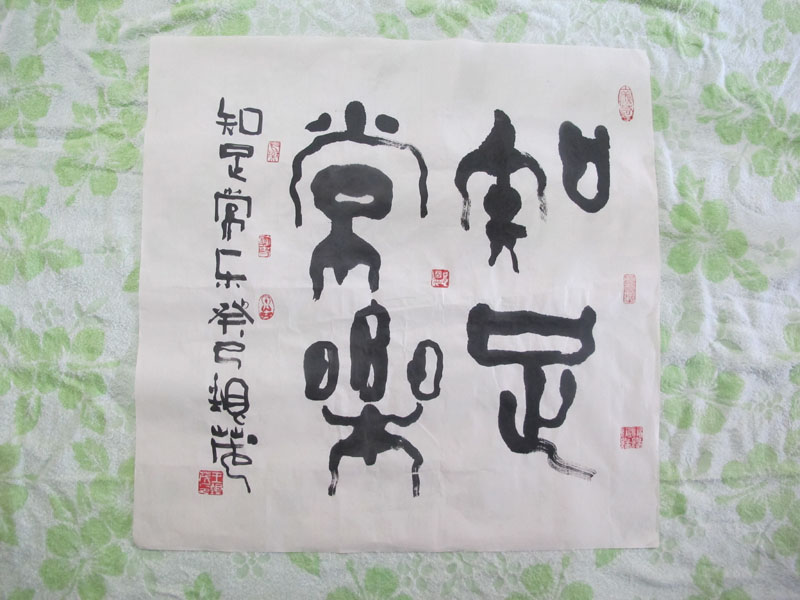 知足
常樂
知足常乐癸巳茂